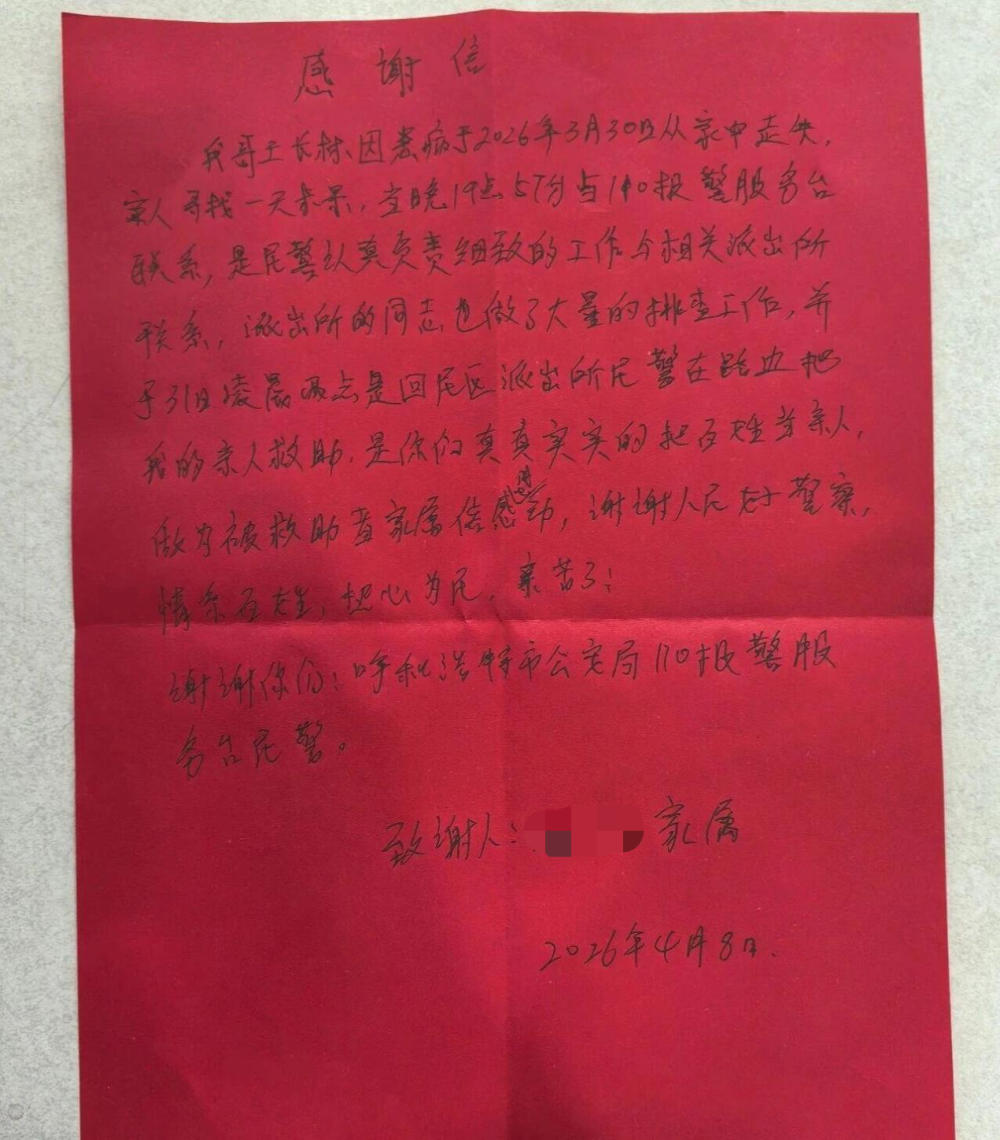 感谢信
我哥王长林因患病于2026年3月30日从家中走失,
家人寻找一天未果,当晚19点57分与110报警服务台
联系,是民警认真负责细致的工作与相关派出所
联系,派出所的同志也做了大量的排查工作,并
于31日凌晨 点是回民区派出所民警在路边把
我的亲人救助.是你们真真实实的把百姓当亲人,
做为被救助者家属倍感 动,谢谢人民 警察,
情系百姓,热心为民,辛苦了!
谢谢你们!呼和浩特市公安局110报警服
务台民警。
致谢人: 家属
2026年4月8日.